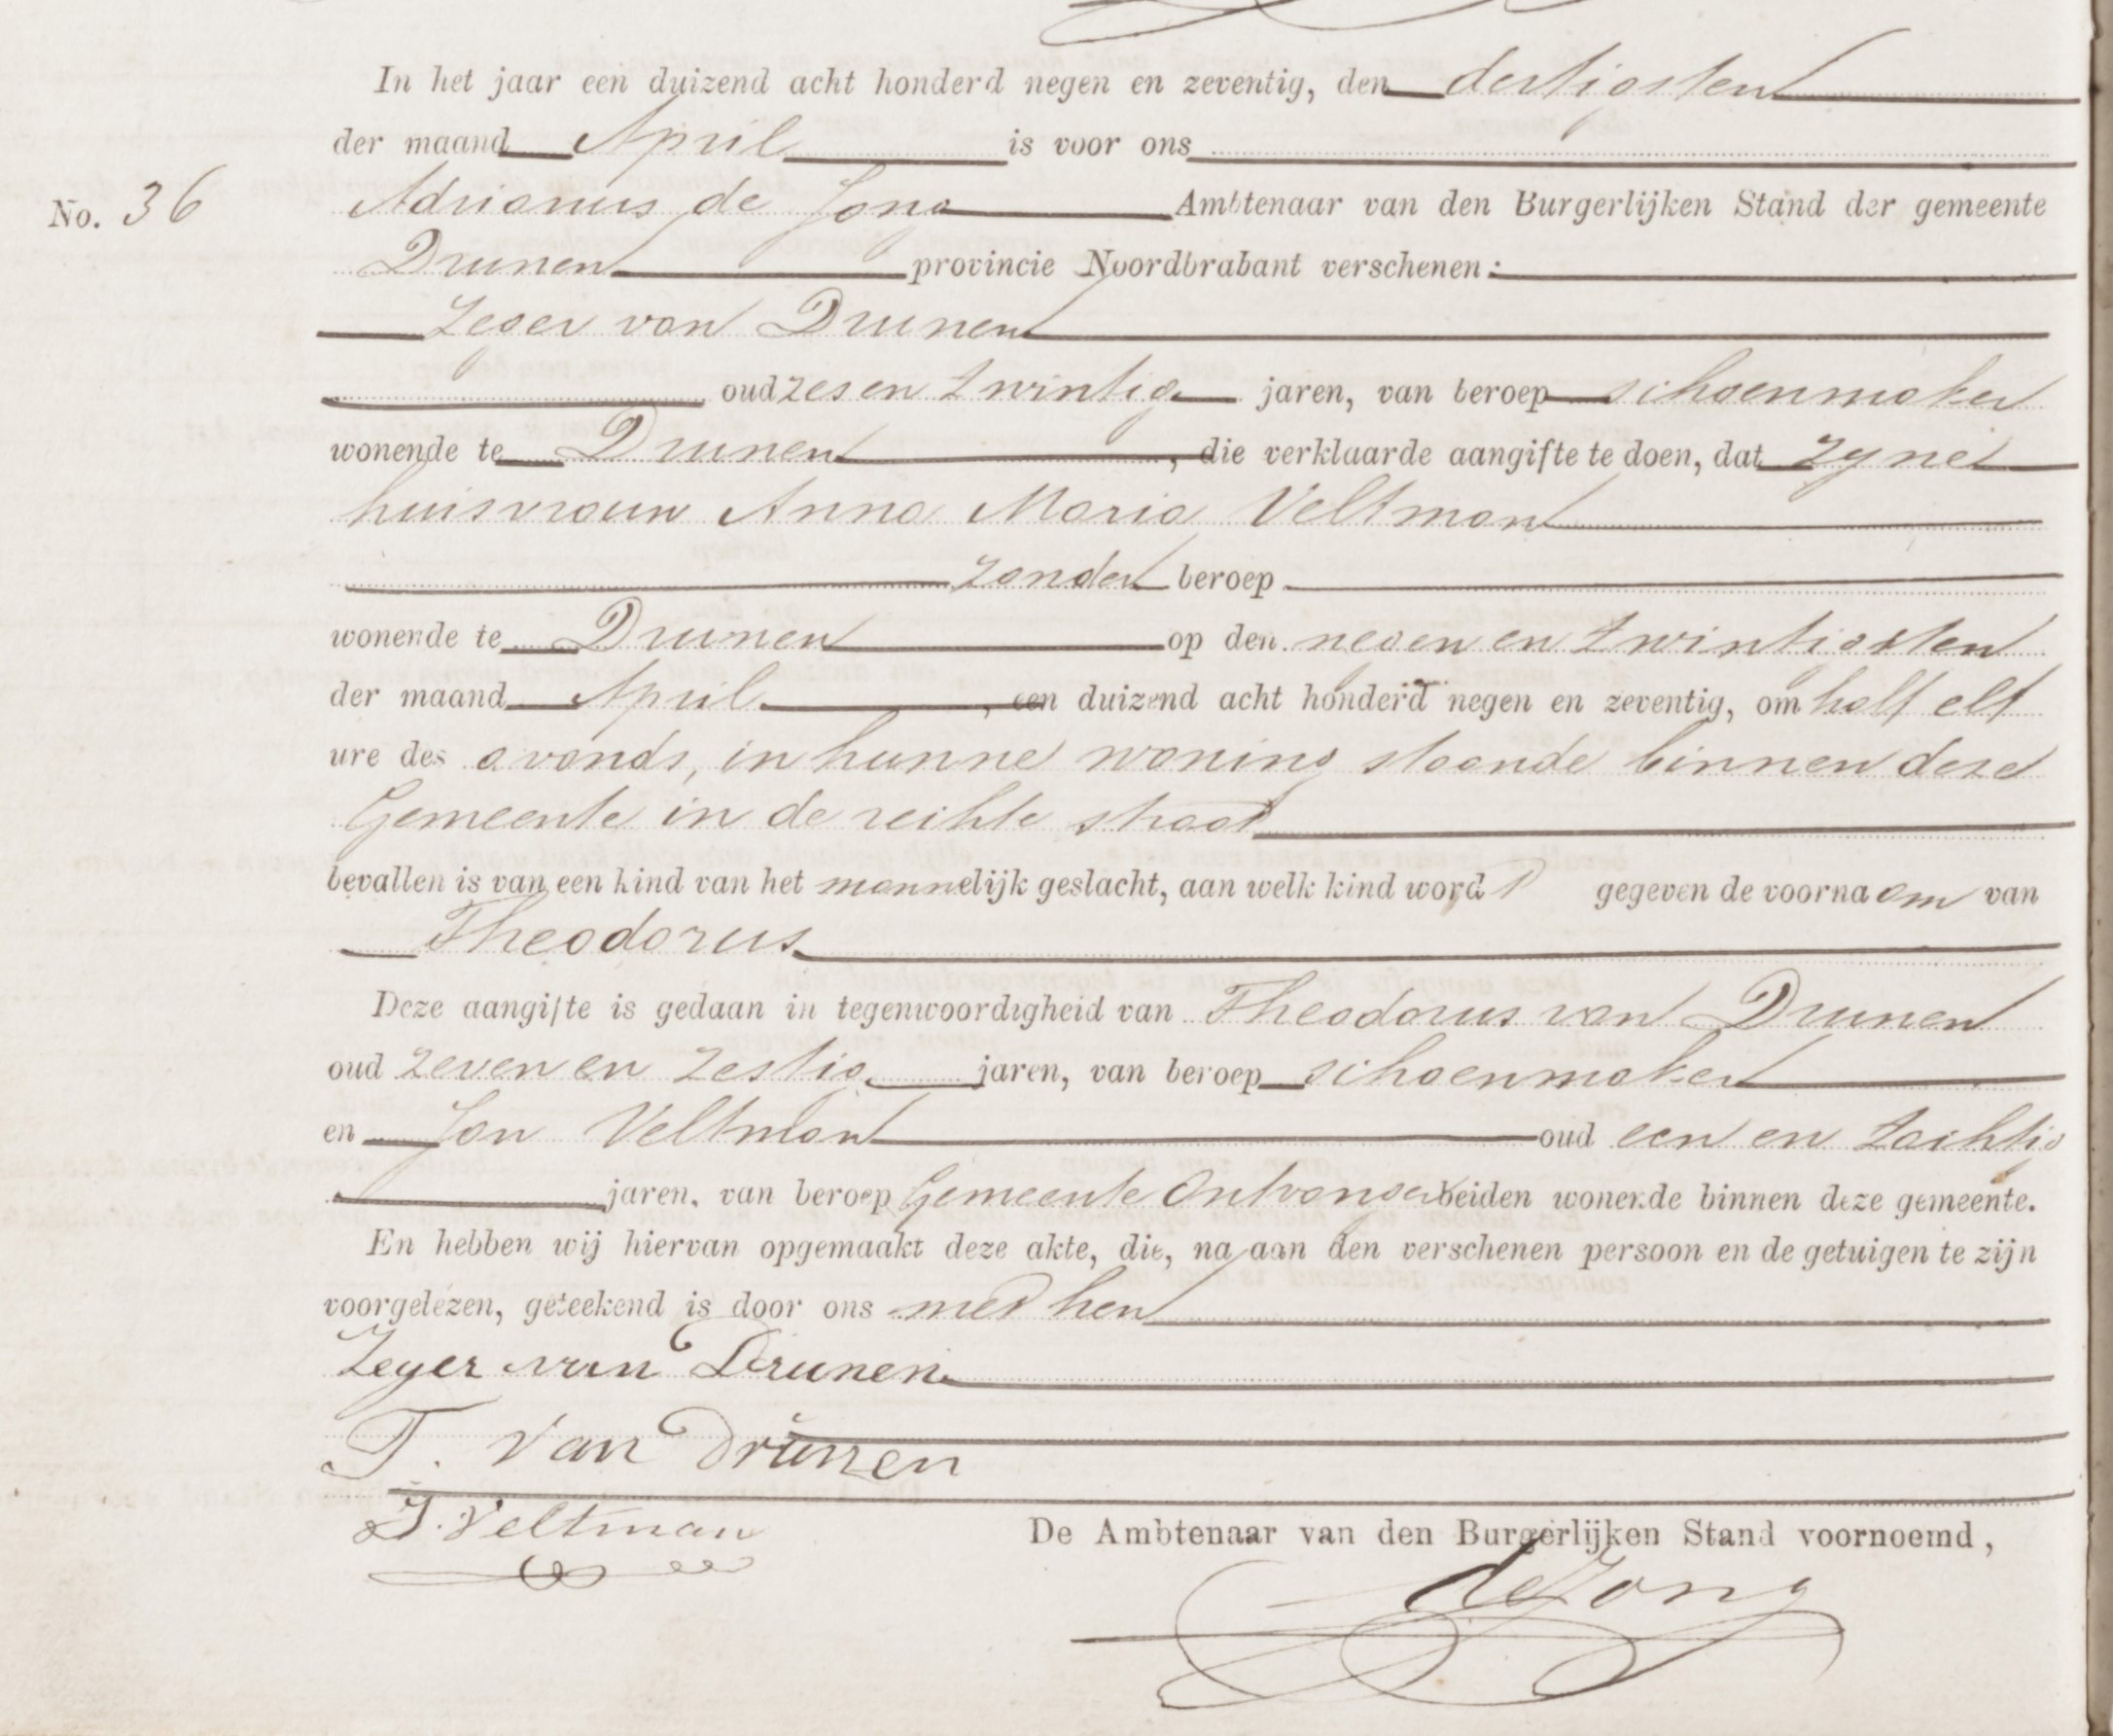 In het jaar een duizend acht honderd negen en zeventig, den dertigsten
der maand April is voor ons
No. 36 Adrianus de Jong Ambtenaar van den Burgerlijken Stand der gemeente
Drunen provincie Noordbrabant verschenen:
Zeger van Drunen
oud zes en twintig jaren, van beroep schoenmaker
wonende te Drunen, die verklaarde aangifte te doen, dat zyne
huisvrouw Anna Maria Veltman
zonder beroep
wonende te Drunen op den negen en twintigsten
der maand April, een duizend acht honderd negen en zeventig, om half elf
ure des avonds, in hunne woning staande binnen deze
Gemeente in de rechte straat
bevallen is van een kind van het mannelijk geslacht, aan welk kind wordt gegeven de voornaam van
Theodorus
Deze aangifte is gedaan in tegenwoordigheid van Theodorus van Drunen
oud zeven en zestig jaren, van beroep schoenmaker
en Jan Veltman oud een en tachtig
jaren, van beroep Gemeente Ontvanger beiden wonende binnen deze gemeente.
En hebben wij hiervan opgemaakt deze akte, die, na aan den verschenen persoon en de getuigen te zijn
voorgelezen, geteekend is door ons met hen
Zeger van Drunen
T. van Drunen
J. Veltman
De Ambtenaar van den Burgerlijken Stand voornoemd,
de Jong